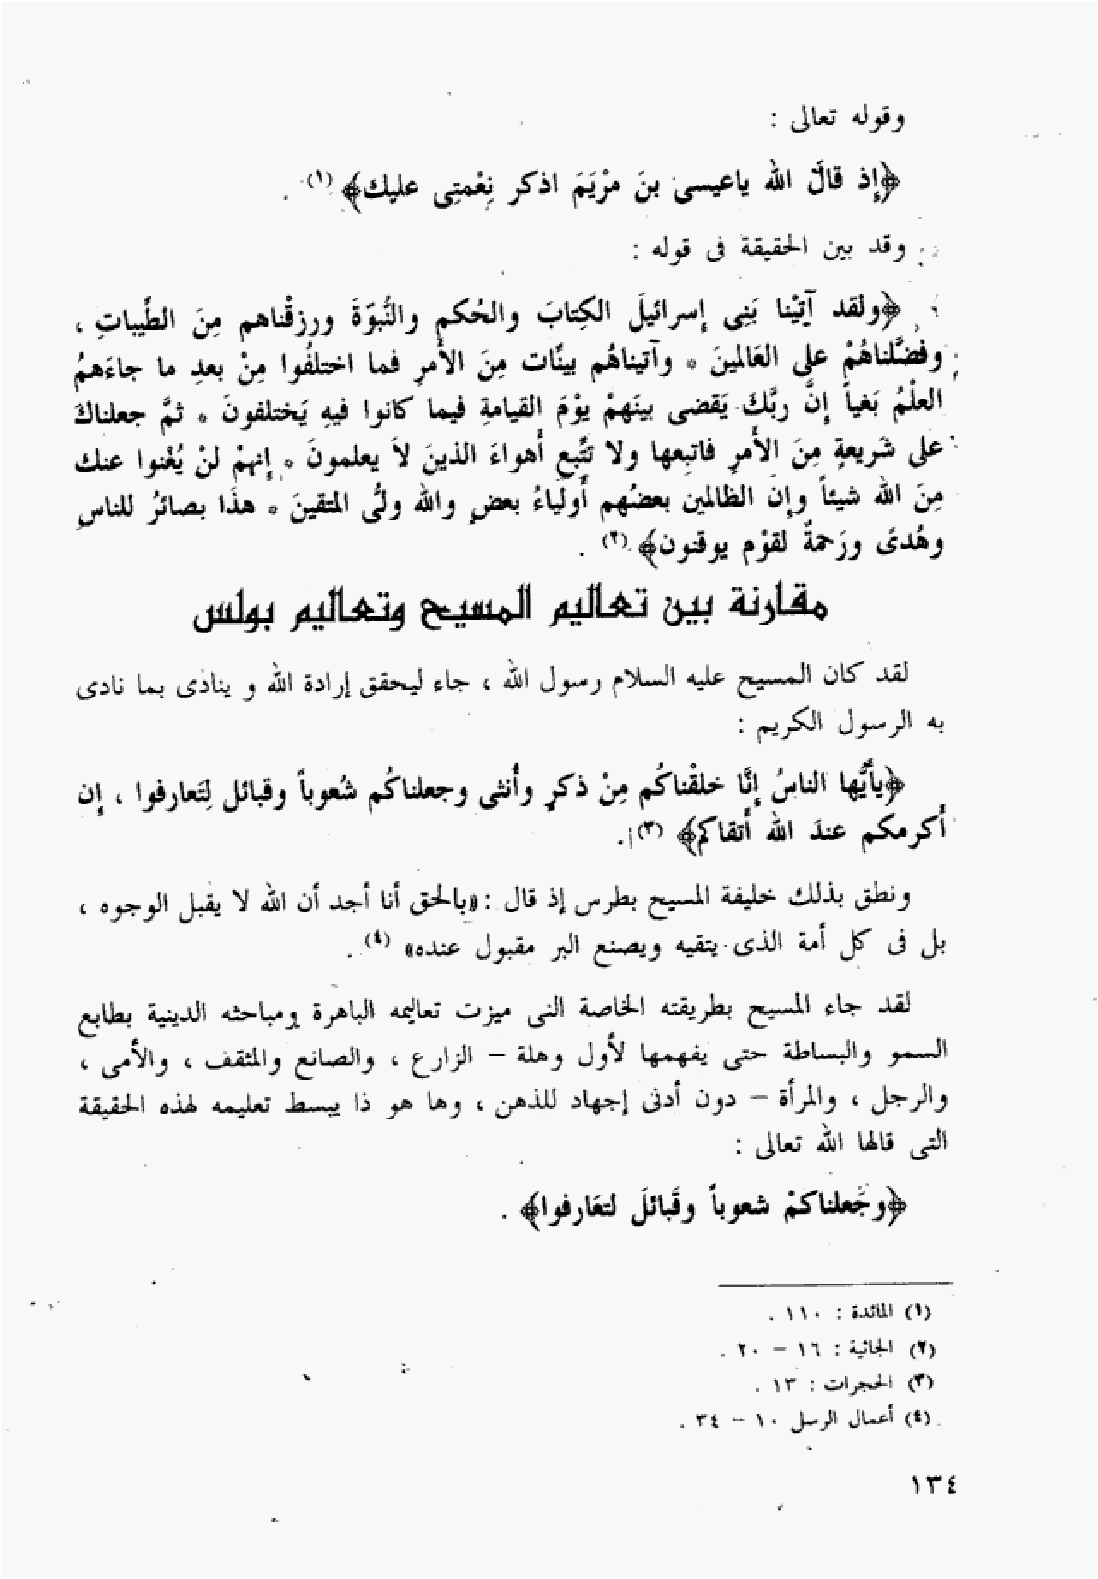 وقوله تعالى :
﴿إذ قالَ الله ياعيسى بنَ مرْيَمَ اذكر نِعْمتِى عليك﴾ (١) .
وقد بين الحقيقة فى قوله :
﴿ولقد آتيْنا بَنِى إسرائيلَ الكِتابَ والحُكم والنُّبوّةَ ورزقْناهم مِنَ الطَّيباتِ ،
وفَضَّلناهُمْ على العَالمينَ * وآتيناهُم بينَّات مِنَ الأَمرِ فما اختلفُوا مِنْ بعدِ ما جاءَهمُ
العلْمُ بَغياً إنَّ ربَّكَ يَقضى بينَهمْ يوْمَ القيامةِ فيما كانوا فيهِ يَختلفونَ * ثمَّ جعلناكَ
على شَريعةٍ مِنَ الأَمرِ فاتبعها ولا تتَّبع أَهواءَ الذينَ لاَ يعلمونَ * إنهمْ لنْ يُغْنوا عنك
مِنَ الله شيئاً وإن الظالمين بعضُهم أَولَياءُ بعضٍ والله ولىُّ المتقينَ * هذَا بصائرُ للناسِ
وهُدىً ورَحمةٌ لقوْم يوقنون﴾ (٢) .
مقارنة بين تعاليم المسيح وتعاليم بولس
لقد كان المسيح عليه السلام رسول الله ، جاء ليحقق إرادة الله و ينادى بما نادى
به الرسول الكريم :
﴿يأَيُّها الناسُ إنَّا خلقْناكُم مِنْ ذكرٍ وأُنثى وجعلناكُم شُعوباً وقبائل لِتَعارفوا ، إن
أَكرمكم عندَ الله أَتقاكم﴾ (٣) .
ونطق بذلك خليفة المسيح بطرس إذ قال : «بالحق أنا أجد أن الله لا يقبل الوجوه ،
بل فى كل أمة الذى يتقيه ويصنع البر مقبول عنده» (٤) .
لقد جاء المسيح بطريقته الخاصة التى ميزت تعاليمه الباهرة ومباحثه الدينية بطابع
السمو والبساطة حتى يفهمها لأول وهلة – الزارع ، والصانع والمثقف ، والأمى ،
والرجل ، والمرأة – دون أدنى إجهاد للذهن ، وها هو ذا يبسط تعليمه لهذه الحقيقة
التى قالها الله تعالى :
﴿وجَعلناكمْ شعوباً وقَبائلَ لتعَارفوا﴾ .
(١) المائدة : ١١٠ .
(٢) الجاثية : ١٦ – ٢٠ .
(٣) الحجرات : ١٣ .
(٤) أعمال الرسل ١٠ – ٣٤ .
١٣٤